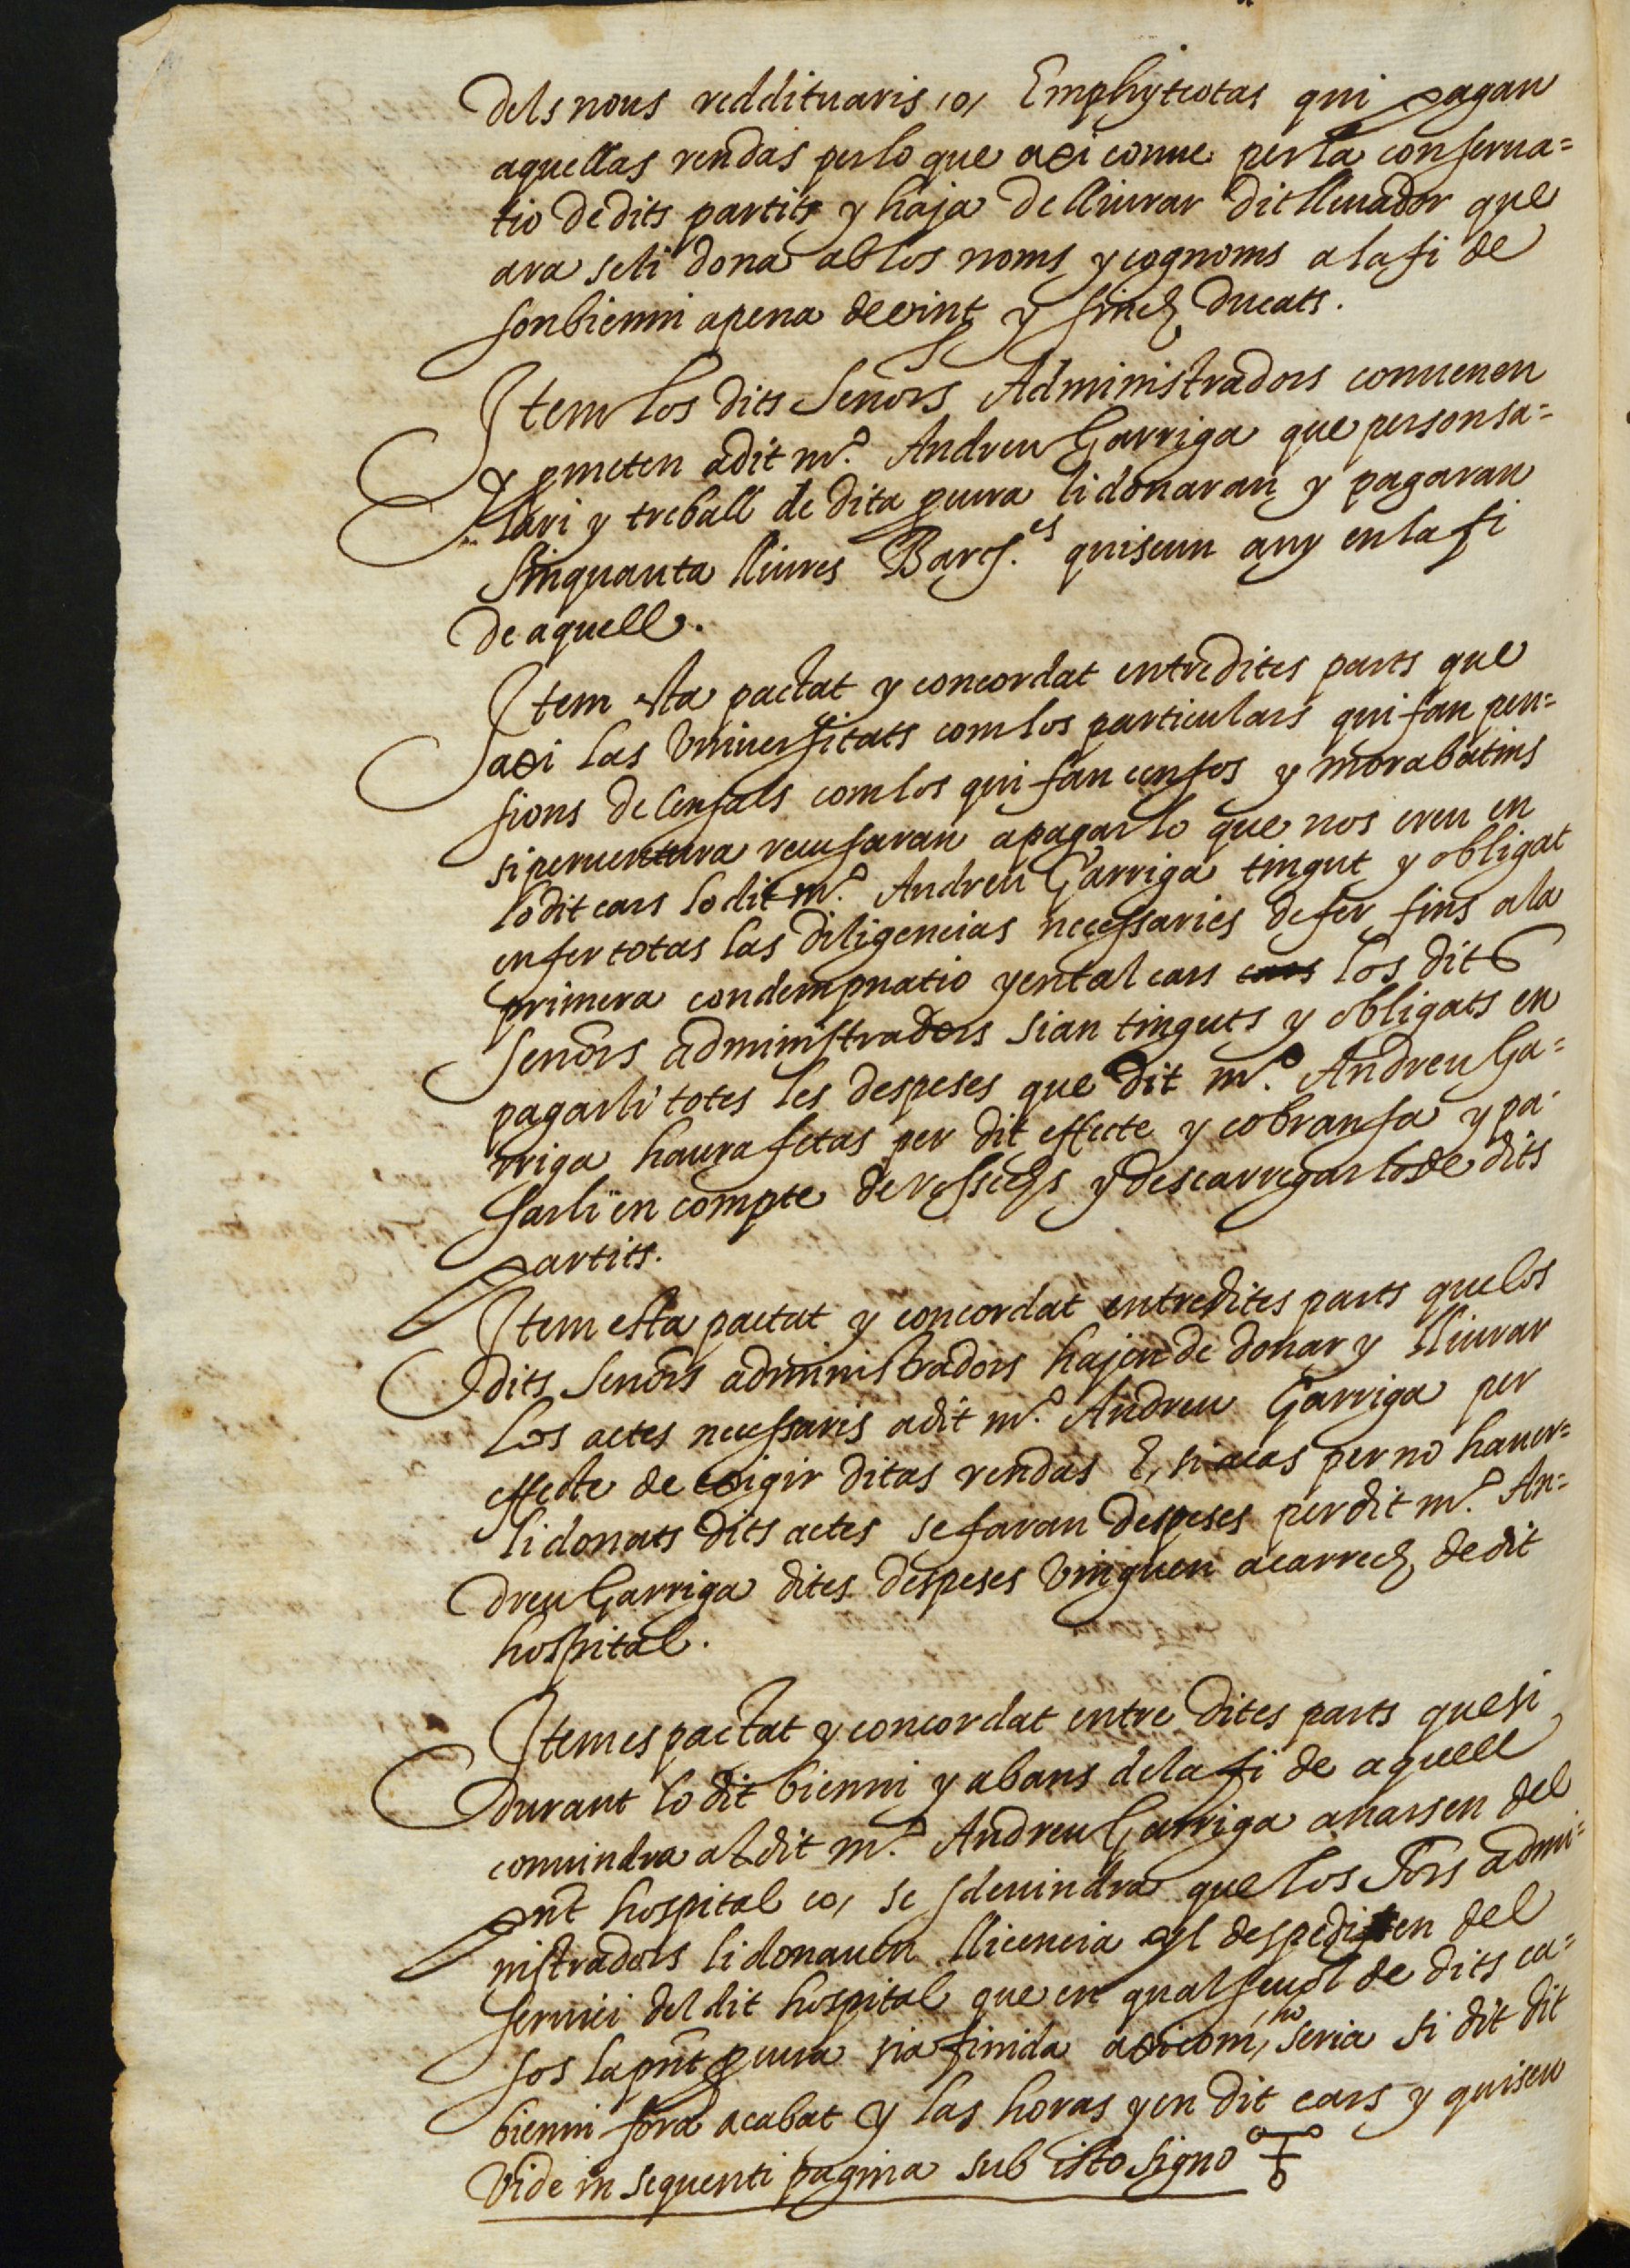 dels nous reddituaris, o, Emphyteotas qui pagan
aquellas rendas perlo que axi conue perla conserua=
tio de dits partits y haja de lliurar dit lleuador que
ara seli dona ab los noms y cognoms a la fi de
son bienni a pena de vint y sinch ducats.
Item los dits senors Administradors conuenen
y pmeten a dit mº. Andreu Garriga que per son sa=
lari y treball de dita pcura li donaran y pagaran
sinquanta lliures Barç.es quiscun any en la fi
de aquell.
Item esta pactat y concordat entre dites parts que
axi las Vniuersitats com los particulars qui fan pen=
sions de Censals com los qui fan censos y morabatins
si per uentura recusaran a pagar lo que nos creu en
lo dit cars lo dit mº. Andreu Garriga tingut y obligat
en fer totas las diligencias necessaries de fer fins a la
primera condempnatio y en tal cars cars los dits
senors administradors sian tinguts y obligats en
pagarli totes les despeses que dit mº. Andreu Ga=
rriga haura fetas per dit effecte y cobransa y pa=
sarli en compte de rossechs y descarregarlo de dits
partits.
Item esta pactat y concordat entre dites parts que los
dits senors administradors hajen de donar y lliurar
los actes necessaris a dit mº. Andreu Garriga per
effecte de exigir ditas rendas E, si acas per no hauer=
li donats dits actes se faran despeses per dit mº. An=
dreu Garriga dites despeses vinguen a carrech de dit
hospital.
Item es pactat y concordat entre dites parts que si
durant lo dit bienni y abans de la fi de aquell
conuindra al dit mº. Andreu Garriga anarsen del
pnt hospital, o, se sdeuindra que los Sors admi=
nistradors li donauen llicencia y l despedissen del
seruici del dit hospital que en qualseuol de dits ca=
sos la pnt pcura sia finida axi com ho seria si dit dit
bienni fora acabat y las horas y en dit cars y quiscu
Vide in sequenti pagina sub isto signo